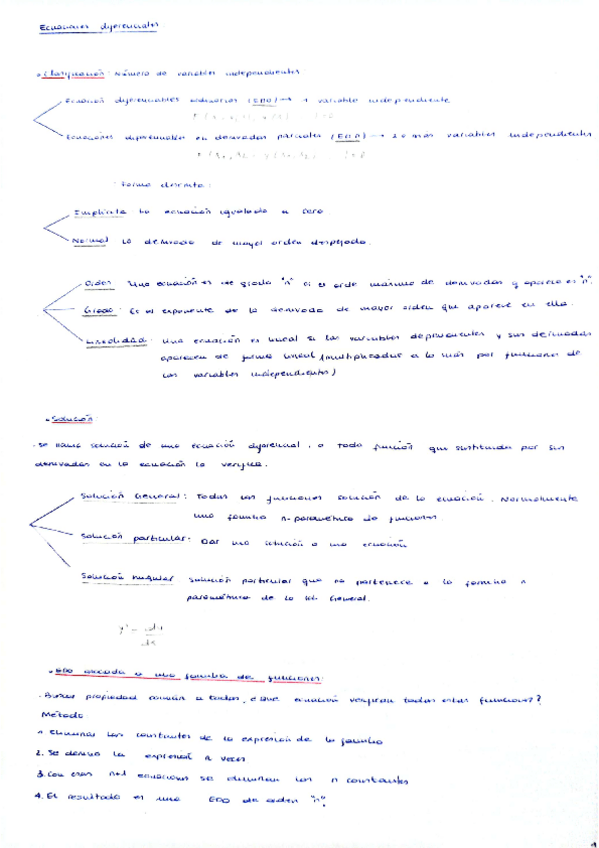 Ecuaciones diferenciales
Clasificación: Número de variables independientes
Ecuación diferenciables ordinarias (EDO) → 1 variable independiente
Ecuaciones diferenciables en derivadas parciales (EDP) → 2 o más variables independientes
Forma descrita:
Implícita La ecuación igualada a cero
Normal La derivada de mayor orden despejada.
Orden Una ecuación es de grado "n" si el orde máximo de derivadas y aparece es "n".
Grado: Es el exponente de la derivada de mayor orden que aparece en ella.
Linealidad: Una ecuación es lineal si las variables dependientes y sus derivadas
aparecen de forma lineal (multiplicadas a lo más por funciones de
las variables independientes)
Solución:
se llama solución de una ecuación diferencial, a toda función que sustituida por sus
derivadas en la ecuación la verifica.
Solución General: Todas las funciones solución de la ecuación. Normalmente
una familia n-paramétrica de funciones
Solución particular: Dar una solución a una ecuación
Solución singular solución particular que no pertenece a la familia n
paramétrica de la sol. General.
y' = dy
dx
EDO asociada a una familia de funciones:
Buscar propiedad común a todas, ¿que ecuación verifican todas estas funciones?
Método
1. Eliminar las constantes de la expresión de la familia
2. Se deriva la expresión n veces
3. Con esas n+1 ecuaciones se eliminan las n constantes
4. El resultado es una EDO de orden "n".